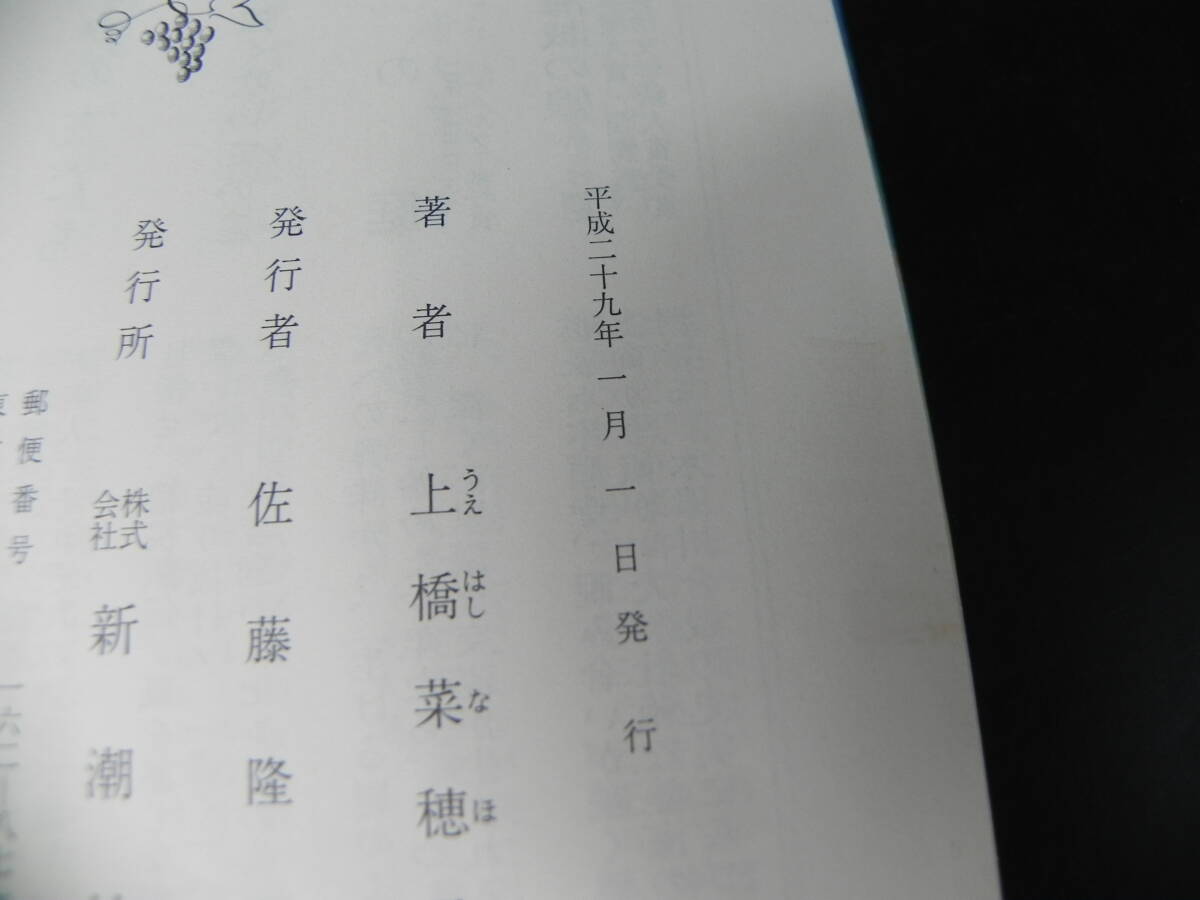 平成二十九年一月一日発行
著者 上橋菜穂
うえはしなほ
発行者 佐藤隆
発行所 株式会社 新潮
郵便番号